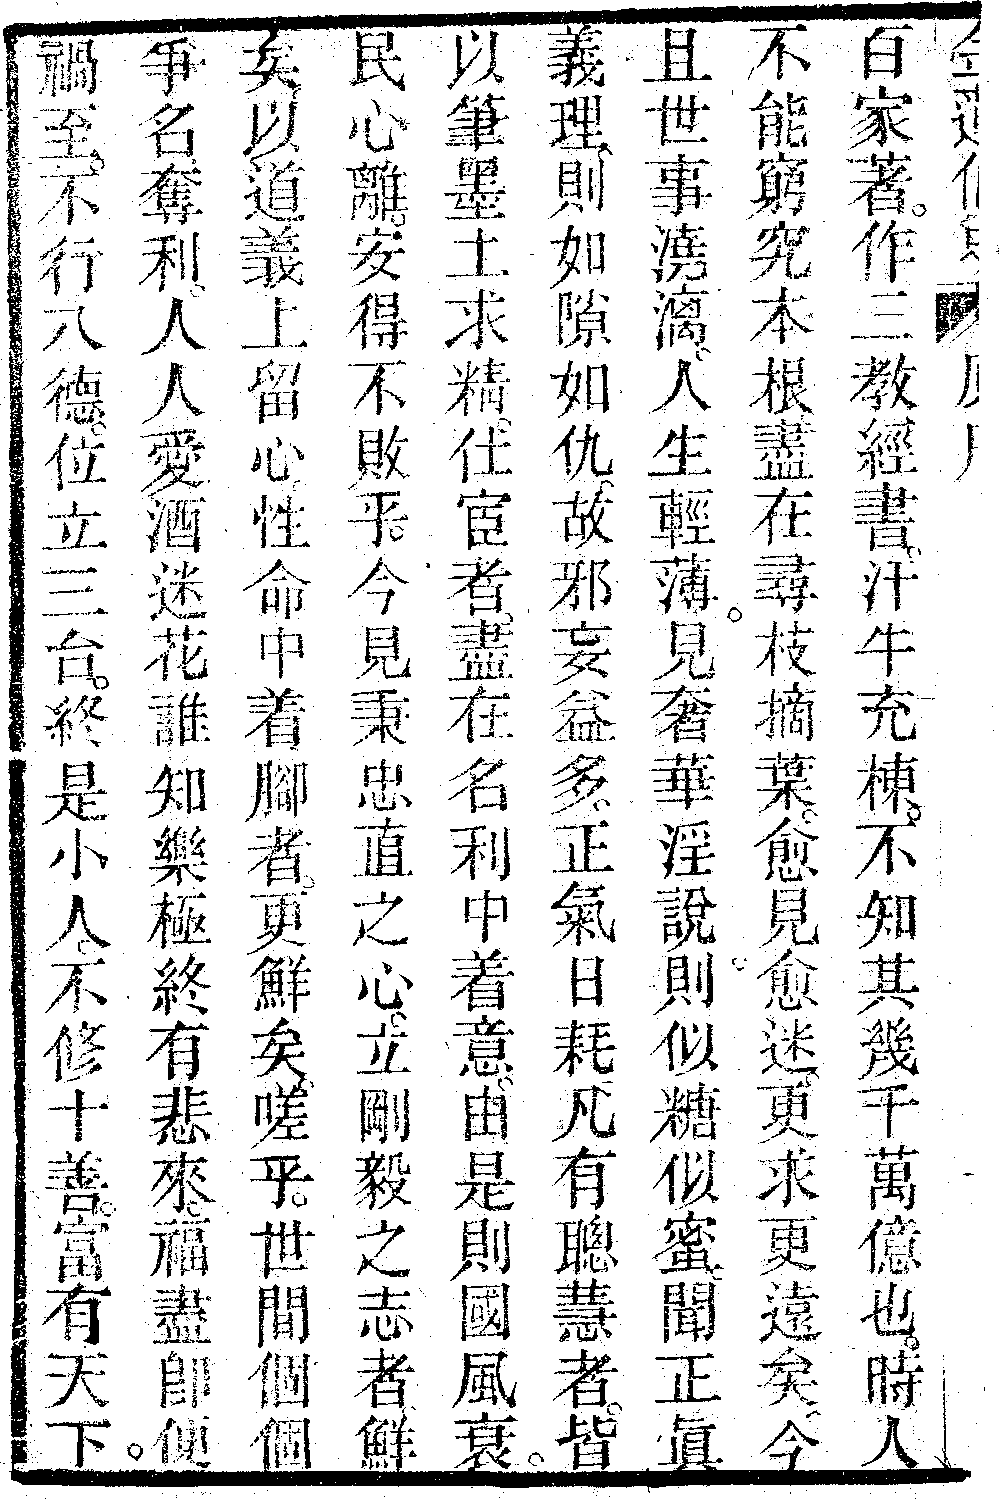 百家著。作三教經書。汗牛充棟。不知其幾千萬億也。時人
不能窮究本根。盡在尋枝摘葉。愈見愈迷。更求更遠矣。今
且世事澆漓。人生輕薄。見奢華淫說。則似糖似蜜。聞正眞
義理。則如隙如仇。故邪妄益多。正氣日耗。凡有聰慧者。皆
以筆墨土求精。仕宦者。盡在名利中着意。由是則國風衰。
民心離。安得不敗乎。今見秉忠直之心。立剛毅之志者。鮮
矣。以道義上留心。性命中着腳者。更鮮矣。嗟乎。世間個個
爭名奪利。人人愛酒迷花。誰知樂極終有悲來。福盡卽便
禍至。不行八德。位立三台。終是小人。不修十善。富有天下。